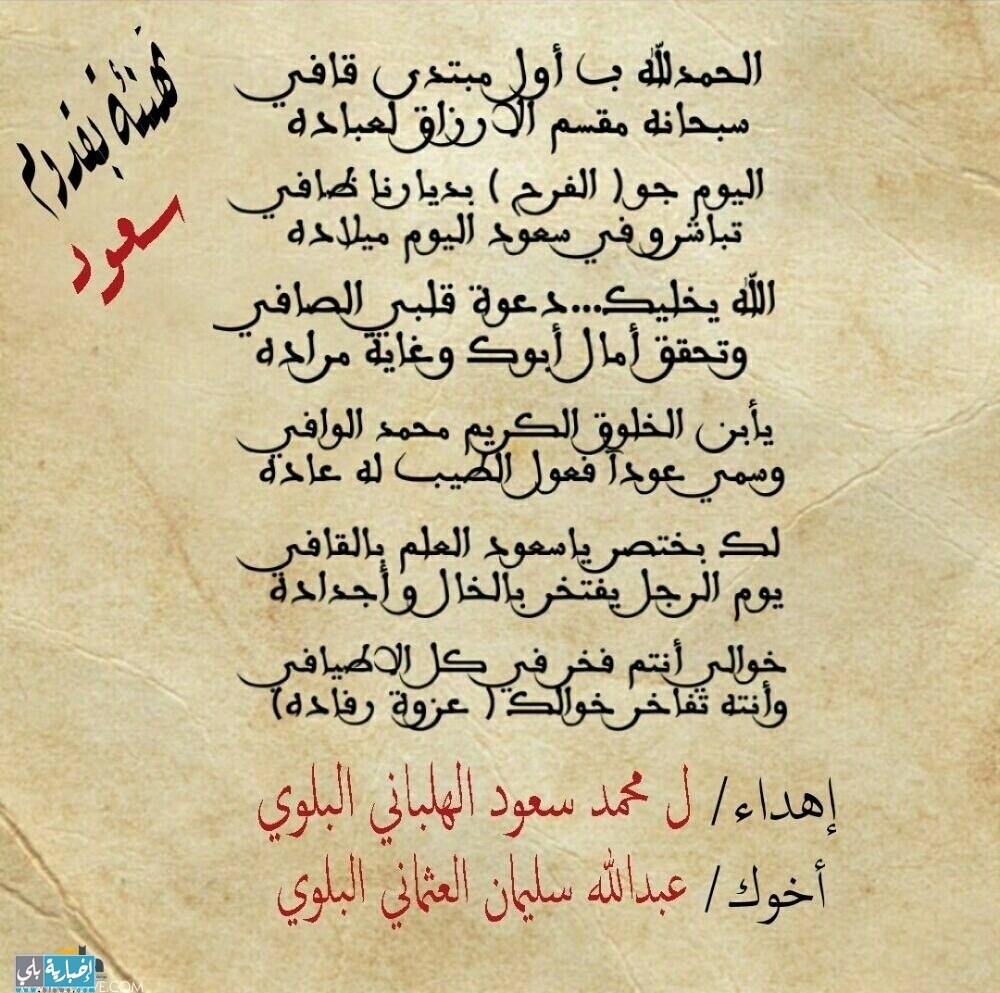 تهنئة بقدوم
سعود
الحمدلله ب أول مبتدى قافي
سبحانه مقسم الارزاق لعباده
اليوم جو( الفرح ) بديارنا ظافي
تباشرو في سعود اليوم ميلاده
الله يخليك...دعوة قلبي الصافي
وتحقق أمال أبوك وغاية مراده
يأبن الخلوق الكريم محمد الوافي
وسمي عوداً فعول الطيب له عاده
لك بختصر ياسعود العلم بالقافي
يوم الرجل يفتخر بالخال وأجداده
خوالي أنتم فخر في كل الاطيافي
وأنته تفاخر خوالك ( عزوة رفاده)
إهداء/ ل محمد سعود الهلباني البلوي
أخوك/ عبدالله سليمان العثماني البلوي
إخبارية بلي